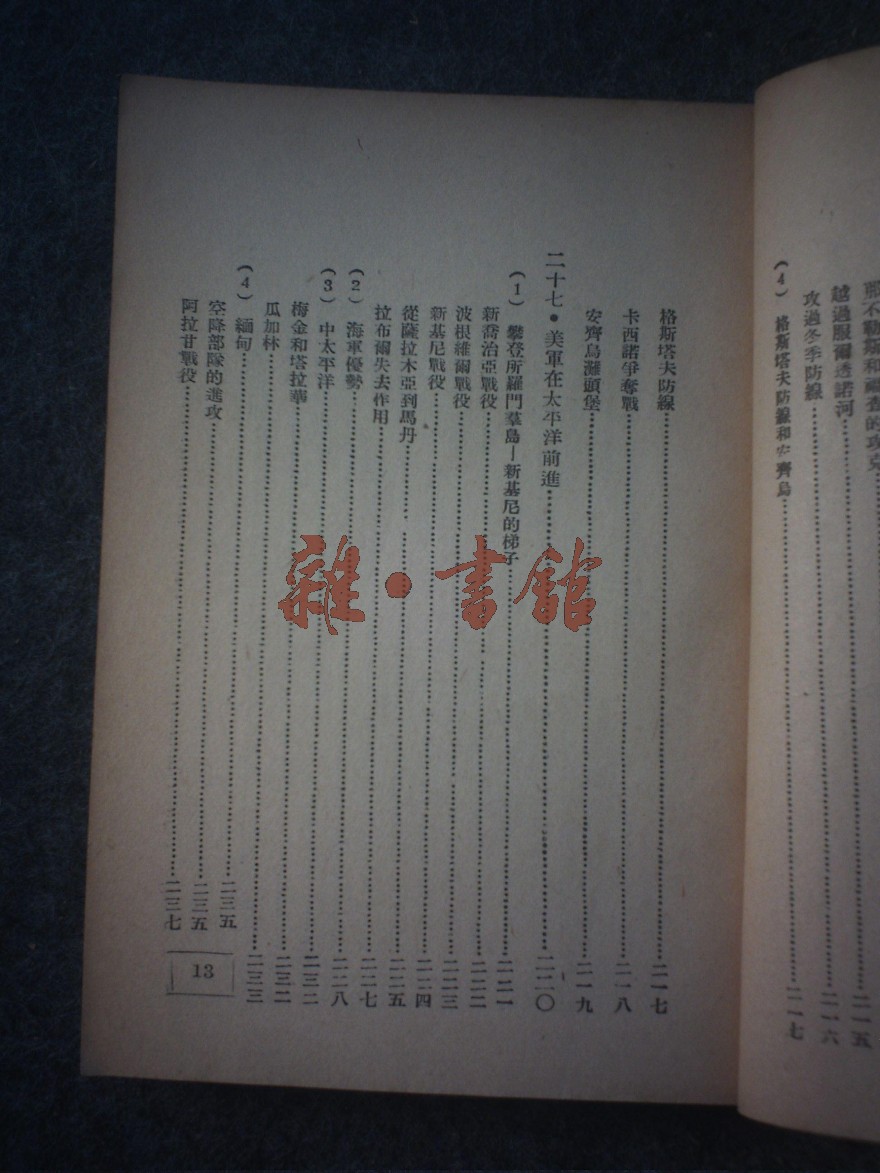 越過服爾透諾河……二一五
攻過冬季防線……二一六
(4) 格斯塔夫防線和安齊烏……二一七
格斯塔夫防線……二一七
卡西諾爭奪戰……二一八
安齊烏灘頭堡……二一九
二十七•美軍在太平洋前進……二二〇
(1) 攀登所羅門羣島—新基尼的梯子……二二一
新喬治亞戰役……二二二
波根維爾戰役……二二三
新基尼戰役……二二四
從薩拉木亞到馬丹……二二五
拉布爾失去作用……二二七
(2) 海軍優勢……二二八
(3) 中太平洋……二三二
梅金和塔拉華……二三二
瓜加林……二三三
(4) 緬甸……二三五
空降部隊的進攻……二三五
阿拉甘戰役……二三七
13
雜•書館